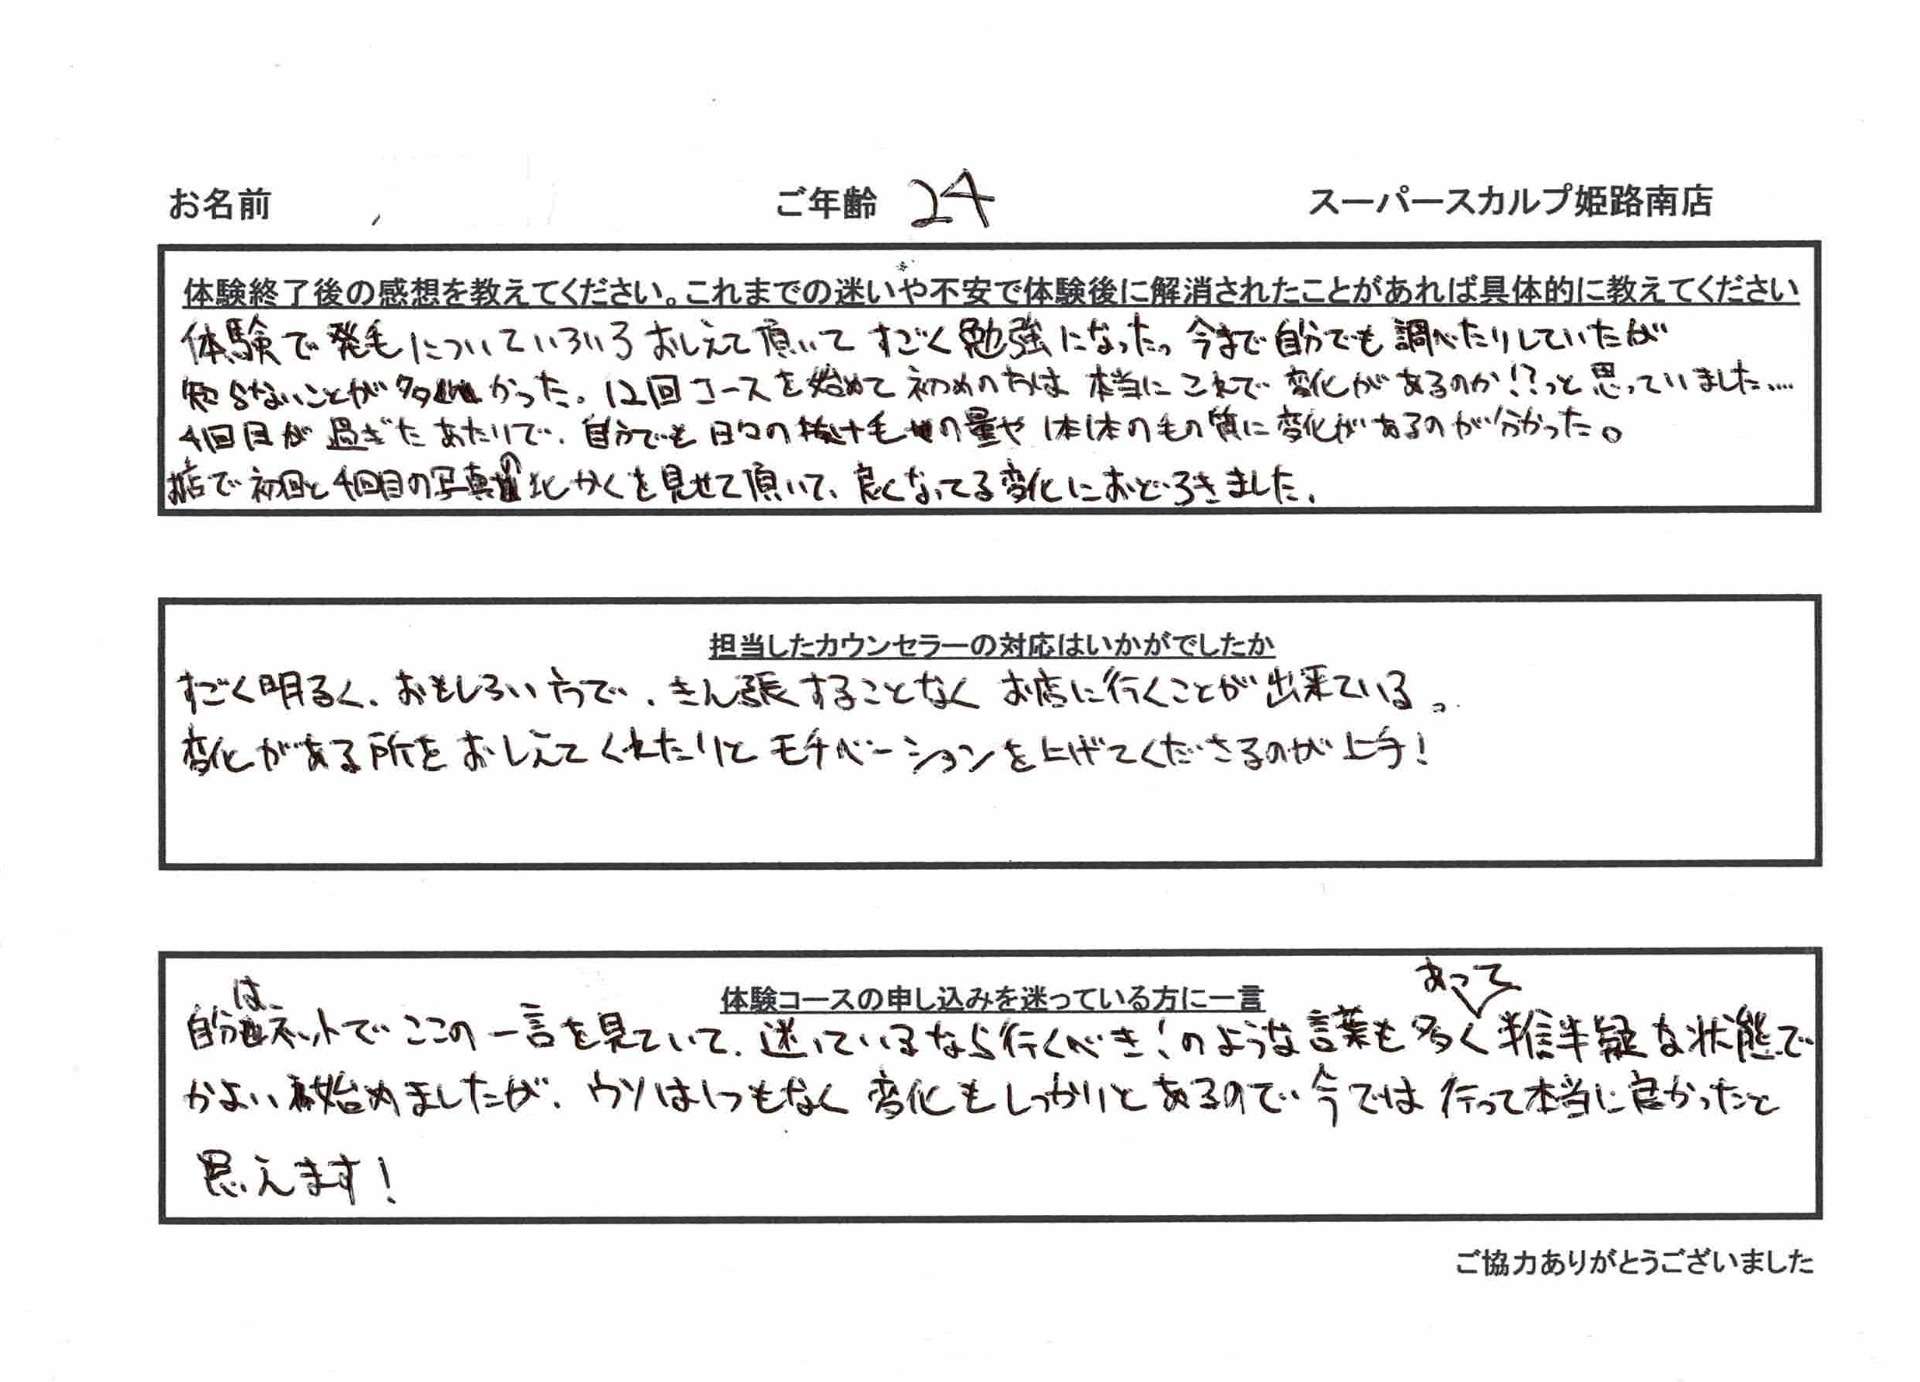 お名前 ご年齢 24 スーパースカルプ姫路南店
体験終了後の感想を教えてください。これまでの迷いや不安で体験後に解消されたことがあれば具体的に教えてください
体験で発毛についていろいろおしえて頂いてすごく勉強になった。今まで自分でも調べたりしていたが
知らないことが多かった。12回コースを始めて初めのうちは本当にこれで変化があるのか!?っと思っていました....
4回目が過ぎたあたりで、自分でも日々の抜け毛の量や1本1本の毛の質に変化があるのが分かった。
お店で初回と4回目の写真のヒかくを見せて頂いて、良くなってる変化におどろきました。
担当したカウンセラーの対応はいかがでしたか
すごく明るく、おもしろい方で、きん張することなくお店に行くことが出来ている。
変化がある所をおしえてくれたりとモチベーションを上げてくださるのが上手!
体験コースの申し込みを迷っている方に一言
自分はネットでここの一言を見ていて、迷っているなら行くべき!のような言葉も多くあって半信半疑な状態で
かよい始めましたが、ウソは1つもなく変化もしっかりとあるので今では行って本当に良かったと
思えます!
ご協力ありがとうございました